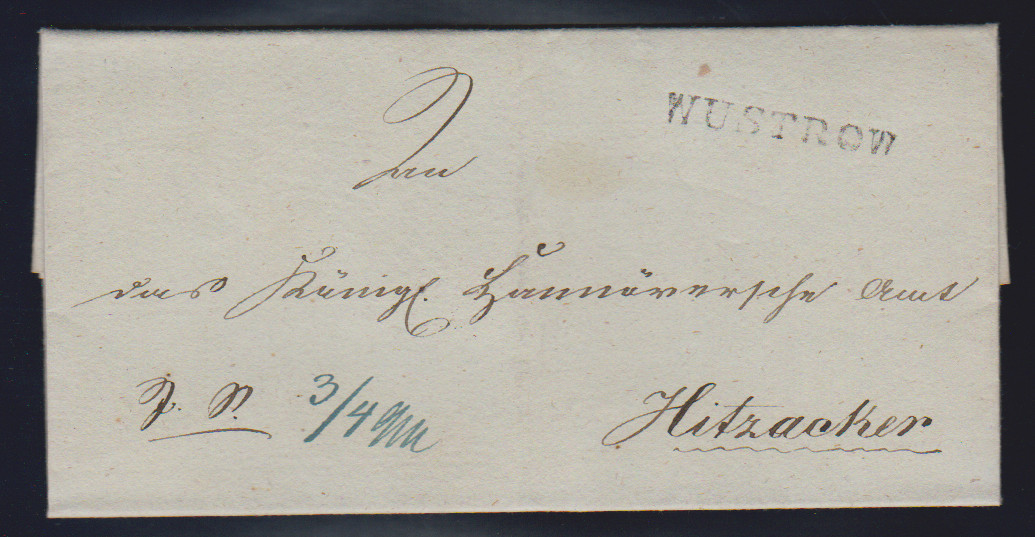 WUSTROW
An
das Königl. Hannöversche Amt
Hitzacker
D. S. 3/4